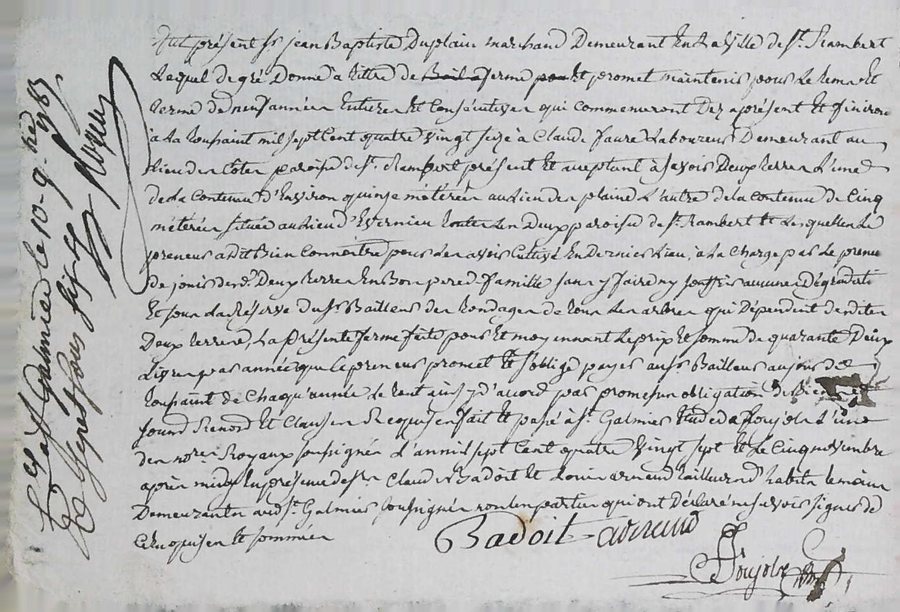 fut présent sr jean Baptiste Duplain marchand Demeurant En La Ville de st. Rambert
Lequel de gré Donne a titre de ferme et promet maintenir pour Le tems Et
terme de neuf années Entieres Et Consécutives qui commenceront Dez a présent Et finiron
à La toussaint mil sept Cent quatre vingt seize à Claude faure Laboureur Demeurant au
Lieu des Côtes paroisse de st. Rambert présent Et acceptant à savoir Deux terres L'une
de La Contenue d'Environ quinze méterées au Lieu des plaine L'autre de La contenue de Cinq
méterées située au Lieu d'Evernieu toutes Les Deux paroisse de st. Rambert Et Lesquelles Le
preneur a dit Bien Connoitre pour Les avoir Cultivé En Dernier Lieu, à La Charge par Le preneur
de jouir desd. Deux terres En Bon pere de famille sans y faire ny souffrir aucunes Dégradati
Et sous La Réserve dud. sr Bailleur des tondages de tous Les arbres qui Dépendent desdites
Deux terres, La présente ferme faite pour Et moyennant Le prix Et somme de quarante Deux
Livres par année que Le preneur promet Et s'oblige payer aud. sr Bailleur au jour de
toussaint de Chaqu'année Le tout ainsy d'acord par promesses obligation de Biens
soumd. Renond. Et Clauses Requises fait Et passé à st. Galmier Etude de foujols L'un
des nores. Royaux soussignés L'an mil sept Cent quatre vingt sept Et Le Cinq novembre
après midy En présence de srs Claude Badoit Et Louis arnaud tailleur habits temoins
Demeurants aud. st. Galmier soussignés non Les parties qui ont Déclaré ne savoir signer de
Ce Enquises Et sommées
Badoit arnaud
foujols
Cé a st Galmier le 10 9.bre 1787
Rx sept sous six d.